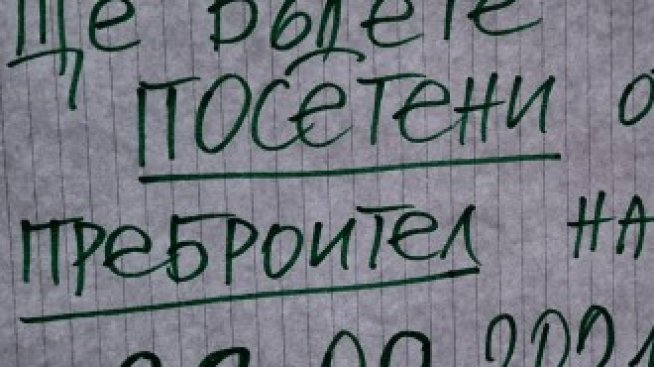 Ще бъдете
ПОСЕТЕНИ о
ПРЕБРОИТЕЛ НА
09 2021